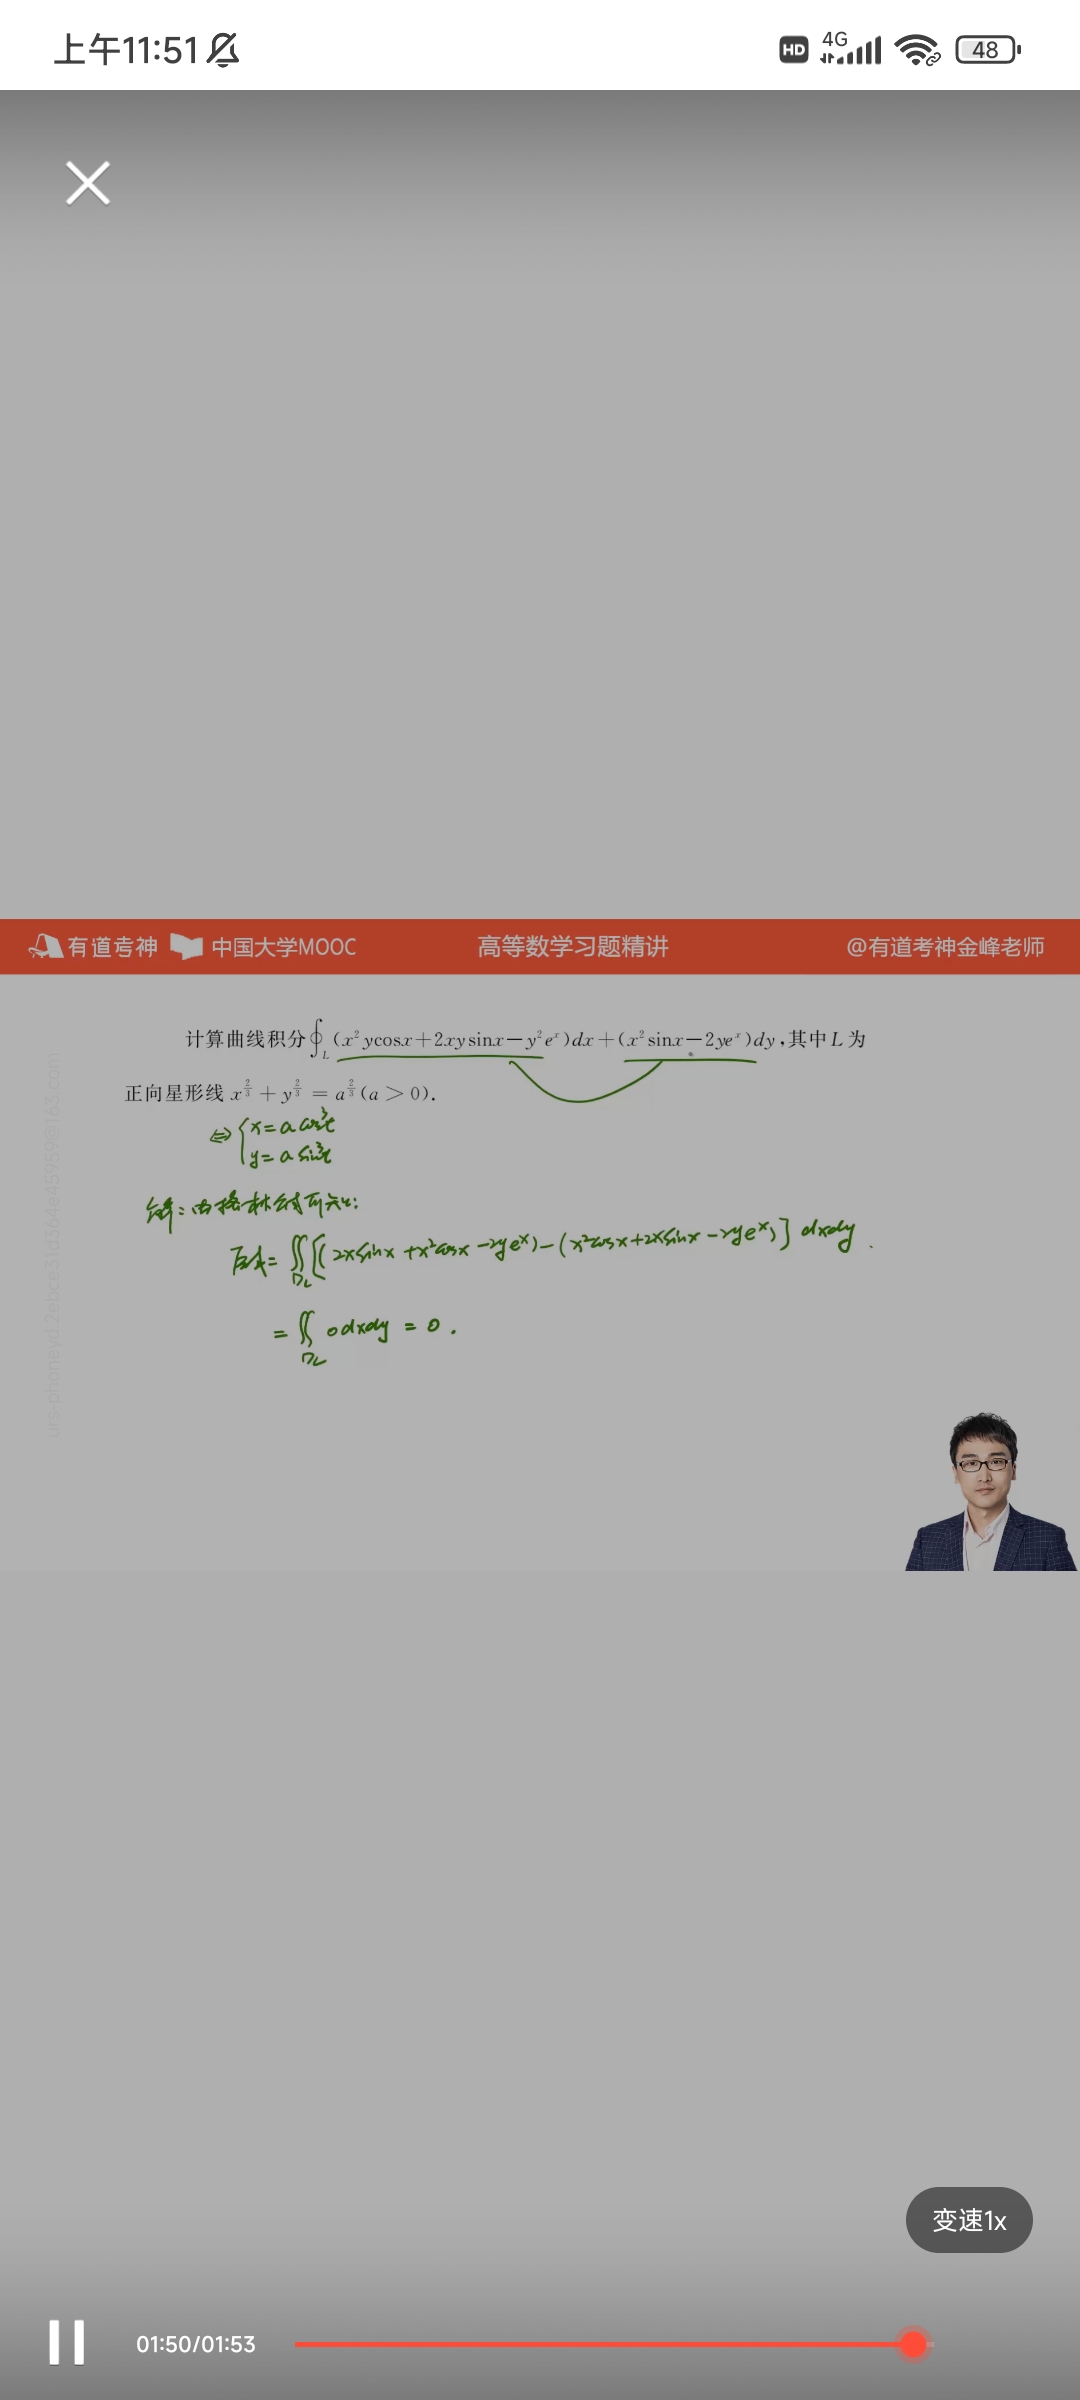 上午11:51
HD 4G 48
有道考神 中国大学MOOC 高等数学习题精讲 @有道考神金峰老师
计算曲线积分∮_L (x²ycosx+2xysinx−y²eˣ)dx+(x²sinx−2yeˣ)dy,其中L为
正向星形线 x^{2/3} + y^{2/3} = a^{2/3}(a > 0).
⇔ { x=a cos³t
y=a sin³t
解:由格林公式可知:
原式= ∬_{D_L} [(2xsinx+x²cosx−2yeˣ)−(x²cosx+2xsinx−2yeˣ)] dxdy.
= ∬_{D_L} 0dxdy = 0.
变速1x
01:50/01:53